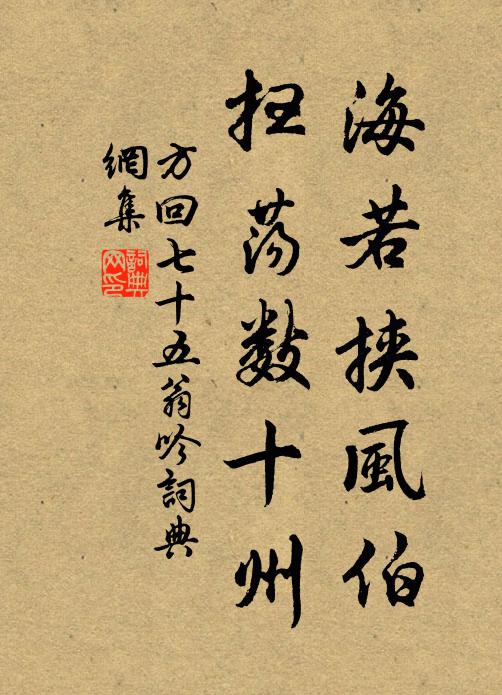 海若挾風伯
掃蕩數十州
方回七十五翁吟詞典
網集
詞典網印